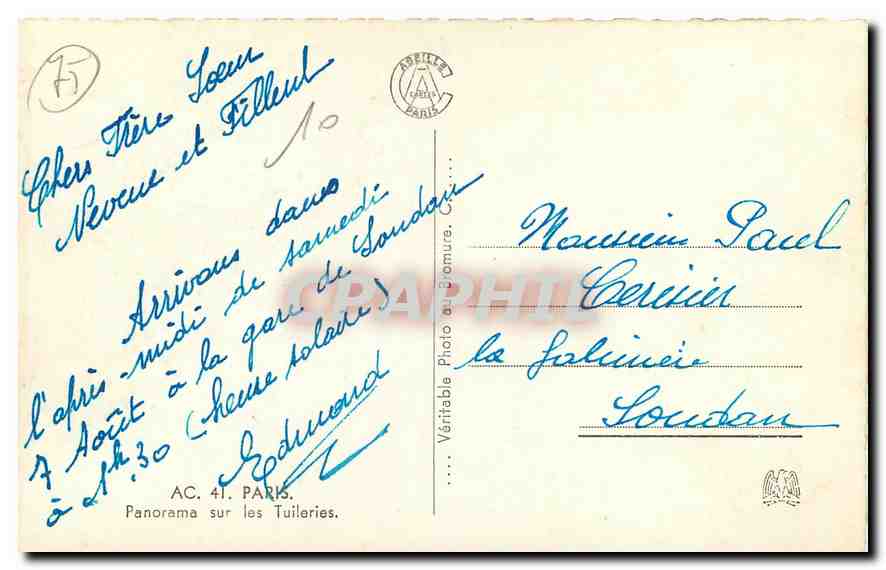 75
Chers Frère Soeur
Neveue et Filleul
10
Arrivons dans
l'après-midi de samedi
7 Août à la gare de Soudan
à 1h30 (heure solaire)
Edmond
AC. 41. PARIS.
Panorama sur les Tuileries.
ABEILLE
CARTES
PARIS
.... Véritable Photo au Bromure. C. ....
Monsieur Paul
Cerisier
la
Soudan
CPAPHIL